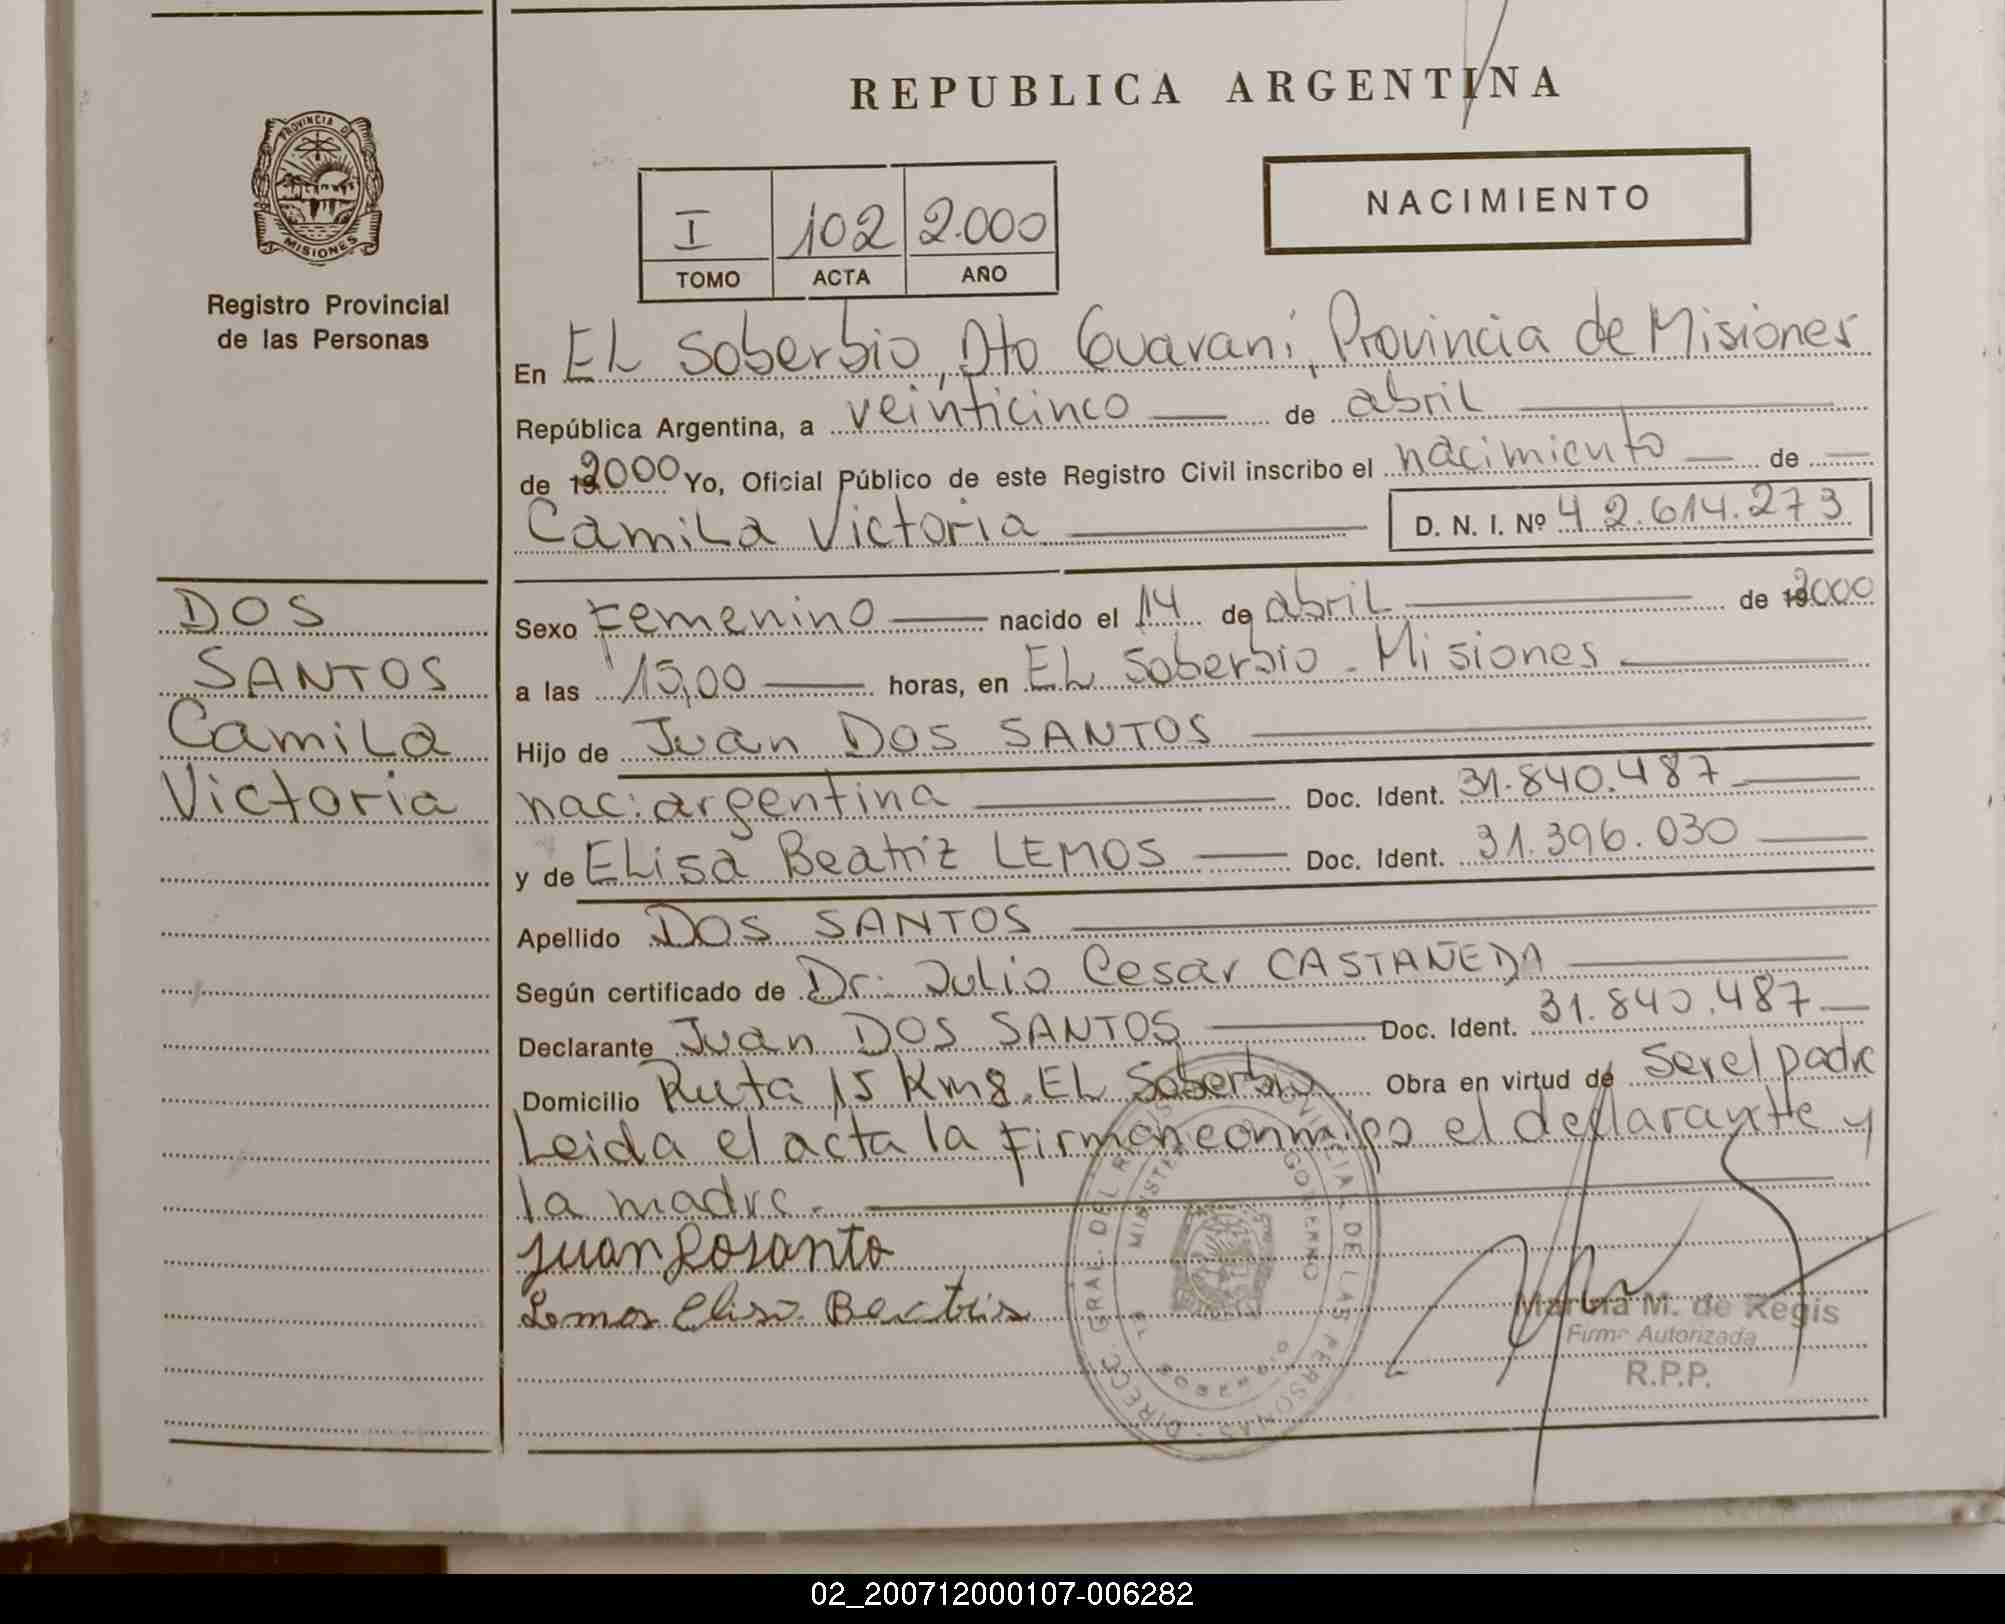 REPUBLICA ARGENTINA
PROVINCIA DE
MISIONES
Registro Provincial
de las Personas
I 102 2.000
TOMO ACTA AÑO
NACIMIENTO
En EL Soberbio, Dto Guaraní, Provincia de Misiones
República Argentina, a veinticinco de abril
de 2000 Yo, Oficial Público de este Registro Civil inscribo el nacimiento de
Camila Victoria D. N. I. Nº 42.614.273
DOS
SANTOS
Camila
Victoria
Sexo Femenino nacido el 14 de abril de 2000
a las 15,00 horas, en EL Soberbio - Misiones
Hijo de Juan DOS SANTOS
nac: argentina Doc. Ident. 31.840.487
y de Elisa Beatriz LEMOS Doc. Ident. 31.396.030
Apellido DOS SANTOS
Según certificado de Dr. Julio Cesar CASTAÑEDA
Declarante Juan DOS SANTOS Doc. Ident. 31.840.487
Domicilio Ruta 15 Km 8. EL Soberbio Obra en virtud de Ser el padre
Leida el acta la firman conmigo el declarante y
la madre.
Juan Dosanto
Lemos Elisa Beatris
M. de Regis
Firma Autorizada
R.P.P.
DIRECC. GRAL. DEL DE LAS PERSONAS
GOBIERNO
02_200712000107-006282